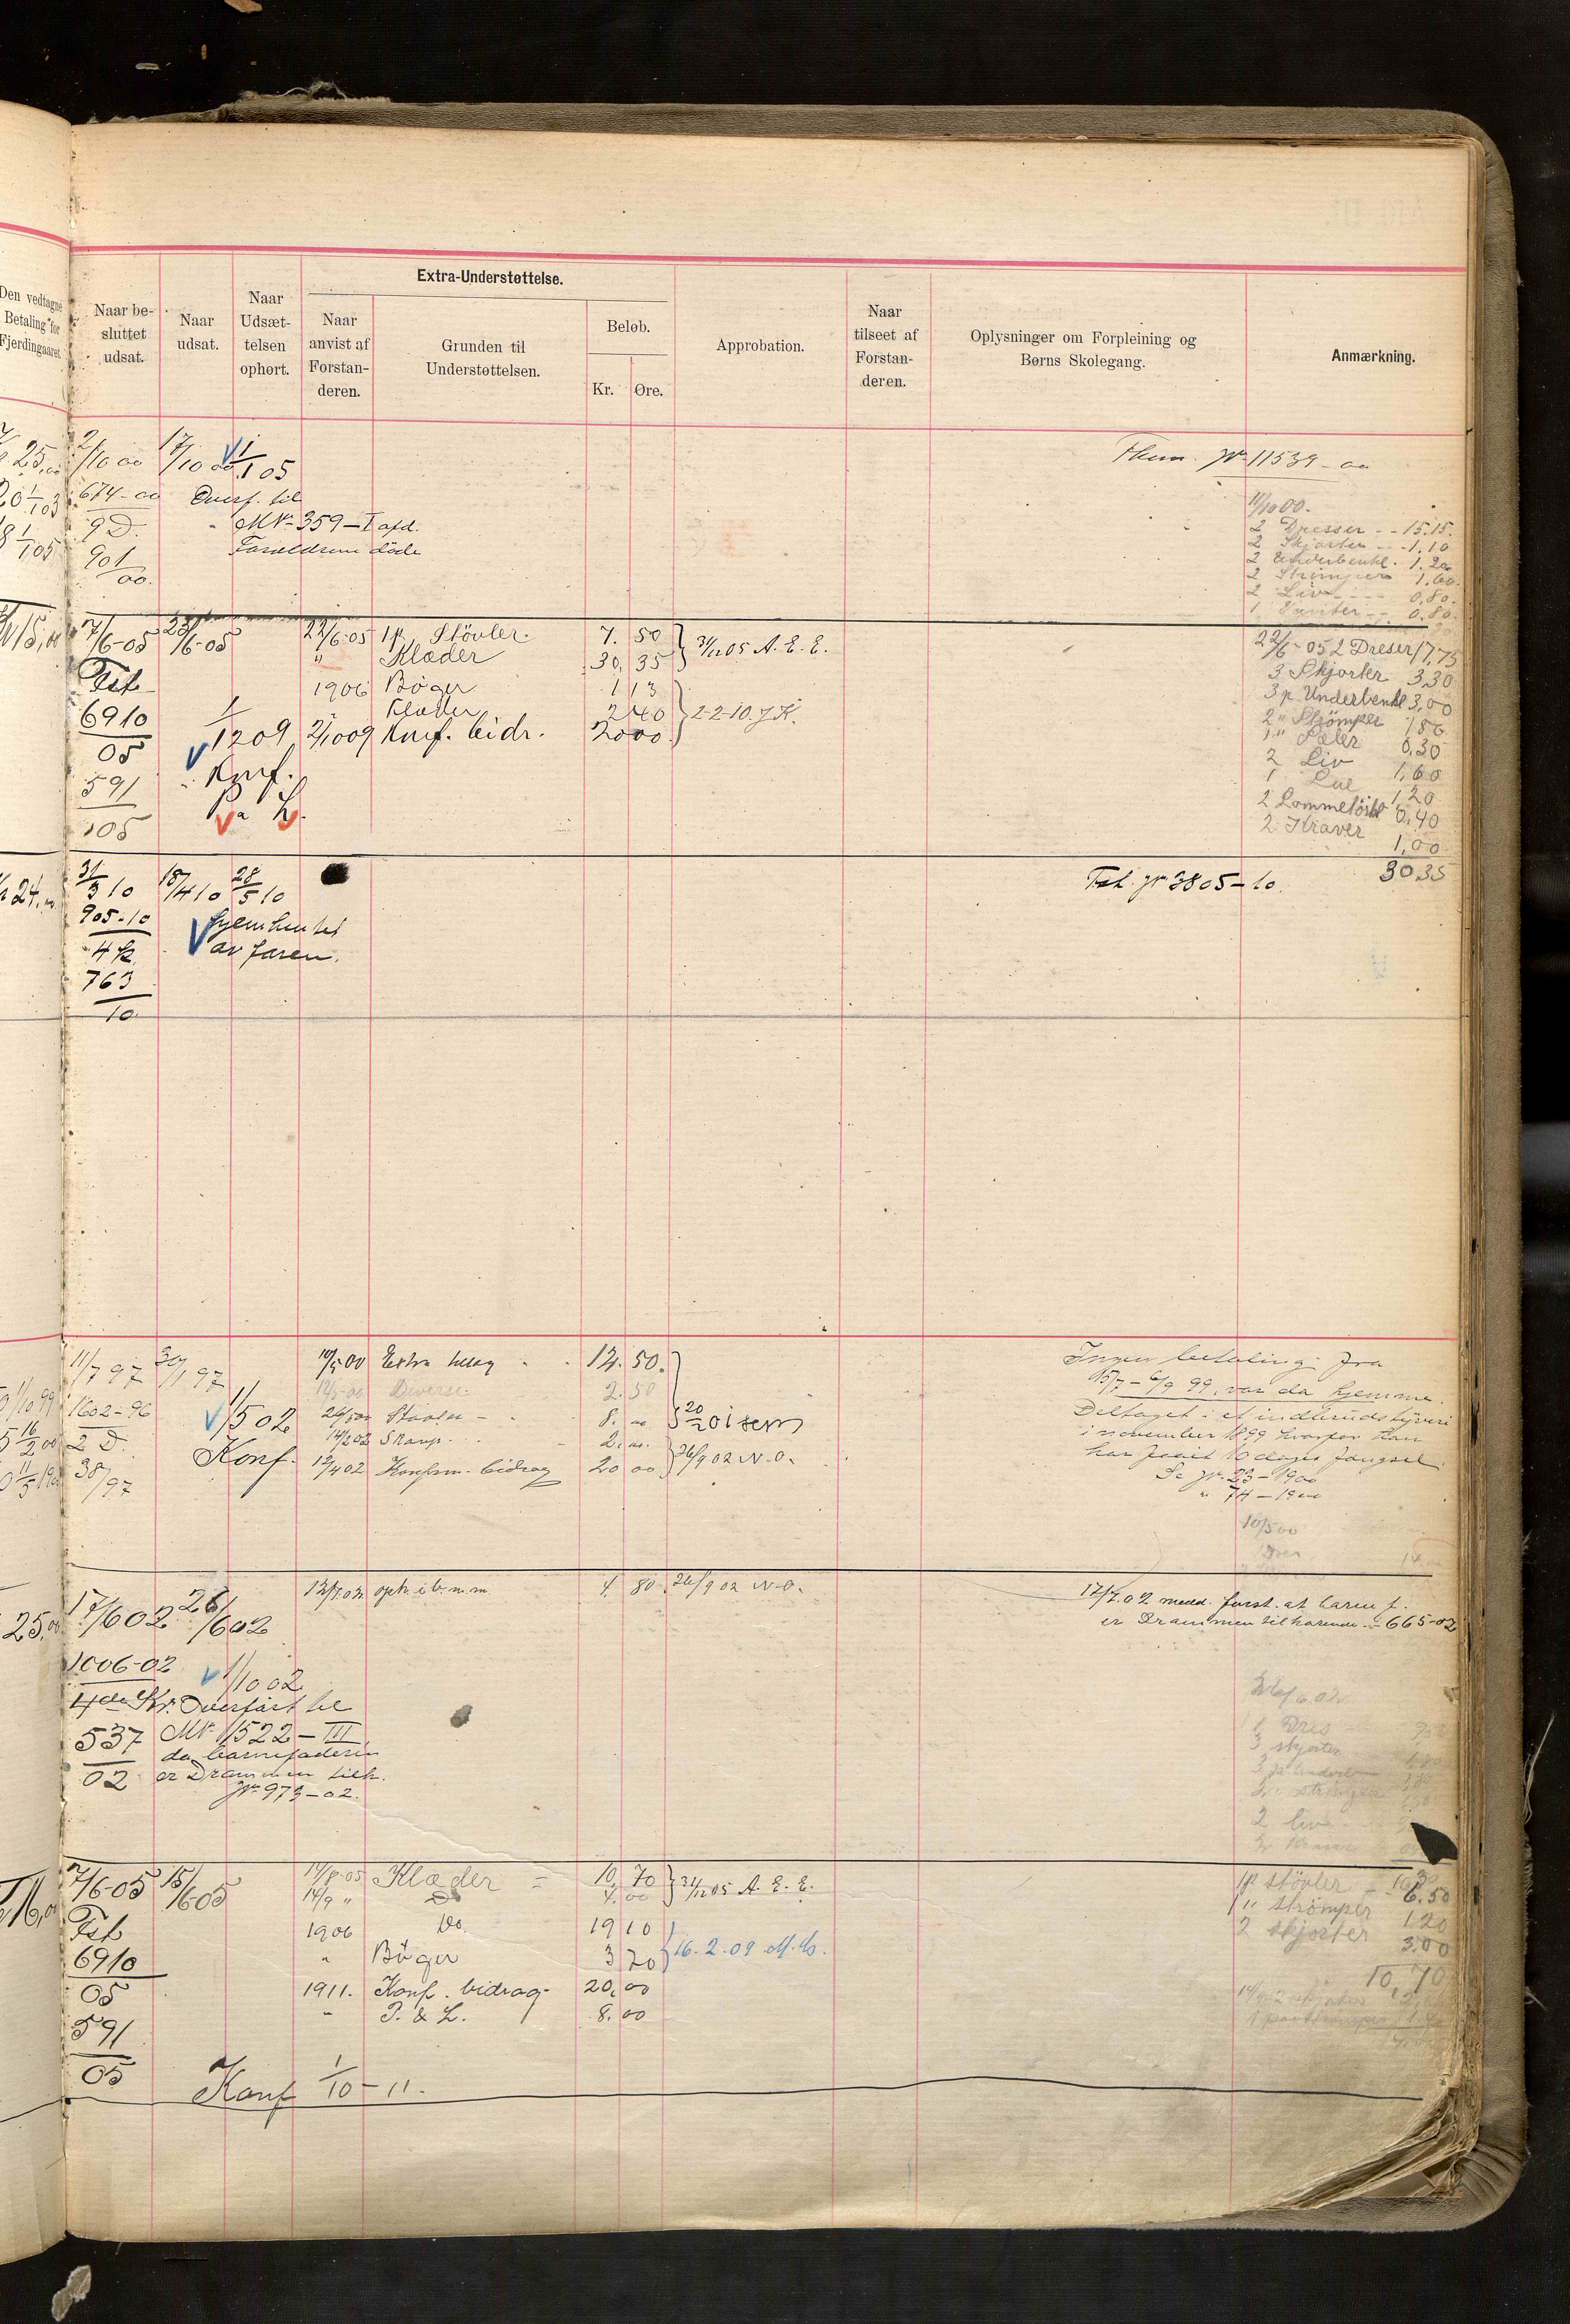 Den vedtagne
Betaling for
Fjerdingaaret
Naar be-
sluttet
udsat.
Naar
udsat.
Naar
Udsæt-
telsen
ophørt.
Extra-Understøttelse.
Naar
anvist af
Forstan-
deren.
Grunden til
Understøttelsen.
Beløb.
Kr.
Øre.
Approbation.
Naar
tilseet af
Forstan-
deren.
Oplysninger om Forpleining og
Børns Skolegang.
Anmærkning.
25,00
2/10 00
17/10 00
1/1 05
Jr 11539-00
674-00
Overf. til
9 D.
Mr 359-I afd.
901/00.
Forældrene døde
11/10 00.
2 Dresser 15.15.
2 Skjorter 1.10
2 Underbenkl. 1.20
2 Strømper 1.60.
2 Liv 0,80.
0.80.
15,00
7/6-05
23/6-05
22/6-05 1 p. Støvler. 7. 50
" Klæder 30, 35
31/12 05 A. E. E.
Fst
1906 Bøger 1 13
6910
05
Klæder 2 40
1/12 09
2/10 09 Konf. bidr. 20 00
2-2-10. J.K.
591
105
Konf.
P. a L.
22/6-05 2 Dreser 17,75
3 Skjorter 3,30
3 p. Underbenkl 3,00
2 " Strømper 1,80
1 " Sæler 0,30
2 Liv 1,60
1 Lue 1,20
2 Lommetörkl 0,40
2 Kraver 1,00
30,35
24,00
31/3 10
18/4 10
28/5 10
Fst. Jr 3805-10.
905-10
4 k
hjemhentet
av faren.
763
10
11/7 97
30/1 97
10/5 00 Extra tillæg 12. 50.
12/5-00 Diverse 2. 50
1602-96
1/5 02
26/5 00 Støvler 8. 00
2 D.
Konf.
14/2 02 Skamp. 2. 00.
38/97
12/4 02 Konfirm. bidrag 20 00
26/9 02 N. O.
Ingen betaling fra
15/7 - 6/9 99, var da hjemme.
Deltaget i et indbrudstyveri
i november 1899 hvorfor han
har faaet 10 dages fængsel.
Se Jr. 23-1900
" 74-1900
10/5 00
25,00
17/6 02
26/6 02
12/7.02 opk. i b. m.m 4. 80.
26/9 02 N.O.
17/7.02 medd. forst. at barnef.
er Drammen tilhørende - 665-02
1006-02
1/10 02
4de Kv. Overført til
537
02
Mr 1522-III
da barnefaderen
er Drammen tilh.
Jr 973-02.
26/6.02
1 Dres
3 skjorter
2 " strømper
2 liv
7/6-05
15/6 05
14/8-05 Klæder 10, 70
14/9 " Do 4. 00
31/12 05 A. E. E.
Fst
6910
05
1906 Do. 19 10
" Bøger 3 20
16.-2.-09
1911. Konf. bidrag 20,00
" P. & L. 8. 00
591
05
Konf 1/10-11.
1 p. støvler 6.50
1 " strömper 1.20
2 skjorter 3.00
10,70